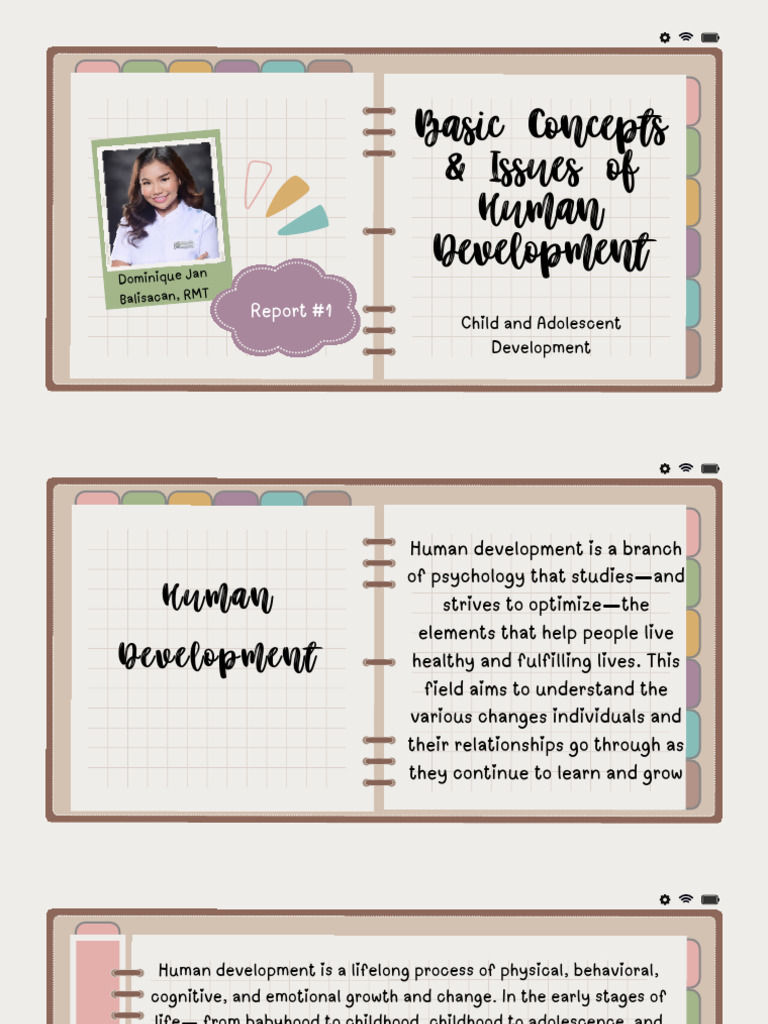 Dominique Jan
Balisacan, RMT
Report #1
Basic Concepts
& Issues of
Human
Development
Child and Adolescent
Development
Human
Development
Human development is a branch
of psychology that studies—and
strives to optimize—the
elements that help people live
healthy and fulfilling lives. This
field aims to understand the
various changes individuals and
their relationships go through as
they continue to learn and grow
Human development is a lifelong process of physical, behavioral,
cognitive, and emotional growth and change. In the early stages of
life— from babyhood to childhood, childhood to adolescence, and